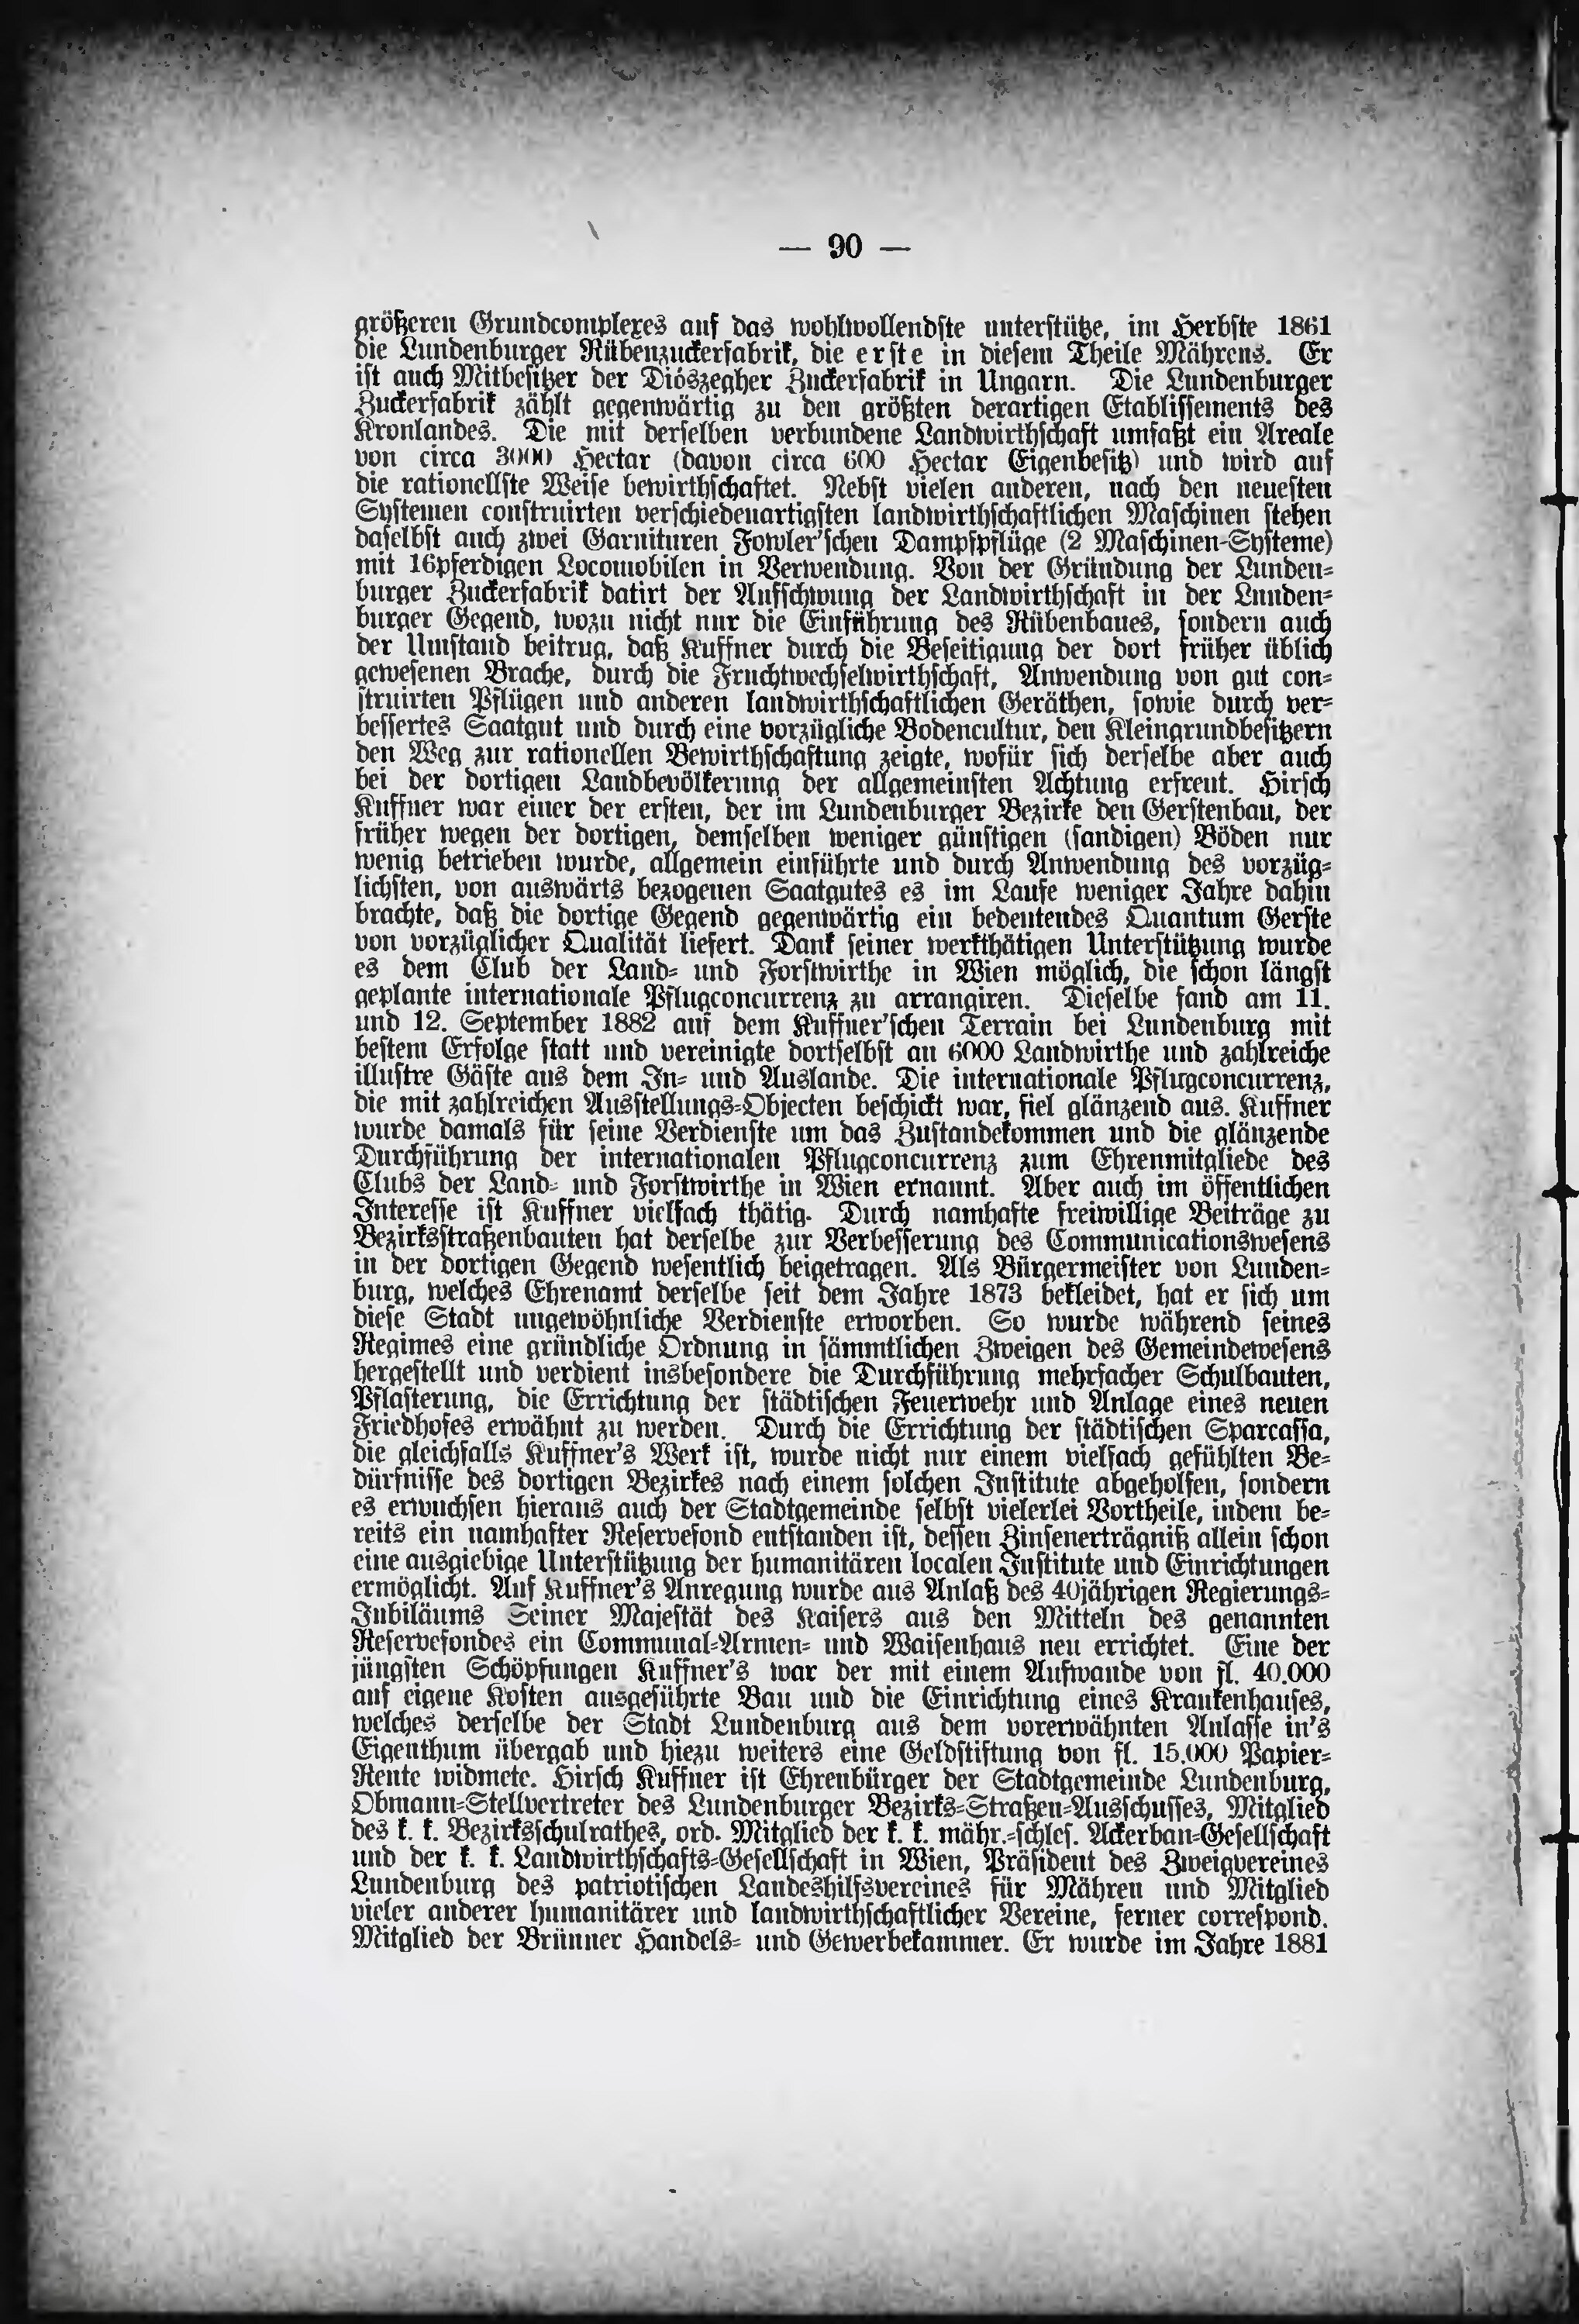 — 90 —
größeren Grundcomplexes auf das wohlwollendste unterstütze, im Herbste 1861
die Lundenburger Rübenzuckerfabrik, die erste in diesem Theile Mährens. Er
ist auch Mitbesitzer der Diószegher Zuckerfabrik in Ungarn. Die Lundenburger
Zuckerfabrik zählt gegenwärtig zu den größten derartigen Etablissements des
Kronlandes. Die mit derselben verbundene Landwirthschaft umfaßt ein Areale
von circa 3000 Hectar (davon circa 600 Hectar Eigenbesitz) und wird auf
die rationellste Weise bewirthschaftet. Nebst vielen anderen, nach den neuesten
Systemen construirten verschiedenartigsten landwirthschaftlichen Maschinen stehen
daselbst auch zwei Garnituren Fowler'schen Dampfpflüge (2 Maschinen-Systeme)
mit 16pferdigen Locomobilen in Verwendung. Von der Gründung der Lunden-
burger Zuckerfabrik datirt der Aufschwung der Landwirthschaft in der Lunden-
burger Gegend, wozu nicht nur die Einführung des Rübenbaues, sondern auch
der Umstand beitrug, daß Kuffner durch die Beseitigung der dort früher üblich
gewesenen Brache, durch die Fruchtwechselwirthschaft, Anwendung von gut con-
struirten Pflügen und anderen landwirthschaftlichen Geräthen, sowie durch ver-
bessertes Saatgut und durch eine vorzügliche Bodencultur, den Kleingrundbesitzern
den Weg zur rationellen Bewirthschaftung zeigte, wofür sich derselbe aber auch
bei der dortigen Landbevölkerung der allgemeinsten Achtung erfreut. Hirsch
Kuffner war einer der ersten, der im Lundenburger Bezirke den Gerstenbau, der
früher wegen der dortigen, demselben weniger günstigen (sandigen) Böden nur
wenig betrieben wurde, allgemein einführte und durch Anwendung des vorzüg-
lichsten, von auswärts bezogenen Saatgutes es im Laufe weniger Jahre dahin
brachte, daß die dortige Gegend gegenwärtig ein bedeutendes Quantum Gerste
von vorzüglicher Qualität liefert. Dank seiner werkthätigen Unterstützung wurde
es dem Club der Land- und Forstwirthe in Wien möglich, die schon längst
geplante internationale Pflugconcurrenz zu arrangiren. Dieselbe fand am 11.
und 12. September 1882 auf dem Kuffner'schen Terrain bei Lundenburg mit
bestem Erfolge statt und vereinigte dortselbst an 6000 Landwirthe und zahlreiche
illustre Gäste aus dem In- und Auslande. Die internationale Pflugconcurrenz,
die mit zahlreichen Ausstellungs-Objecten beschickt war, fiel glänzend aus. Kuffner
wurde damals für seine Verdienste um das Zustandekommen und die glänzende
Durchführung der internationalen Pflugconcurrenz zum Ehrenmitgliede des
Clubs der Land- und Forstwirthe in Wien ernannt. Aber auch im öffentlichen
Interesse ist Kuffner vielfach thätig. Durch namhafte freiwillige Beiträge zu
Bezirksstraßenbauten hat derselbe zur Verbesserung des Communicationswesens
in der dortigen Gegend wesentlich beigetragen. Als Bürgermeister von Lunden-
burg, welches Ehrenamt derselbe seit dem Jahre 1873 bekleidet, hat er sich um
diese Stadt ungewöhnliche Verdienste erworben. So wurde während seines
Regimes eine gründliche Ordnung in sämmtlichen Zweigen des Gemeindewesens
hergestellt und verdient insbesondere die Durchführung mehrfacher Schulbauten,
Pflasterung, die Errichtung der städtischen Feuerwehr und Anlage eines neuen
Friedhofes erwähnt zu werden. Durch die Errichtung der städtischen Sparcassa,
die gleichfalls Kuffner's Werk ist, wurde nicht nur einem vielfach gefühlten Be-
dürfnisse des dortigen Bezirkes nach einem solchen Institute abgeholfen, sondern
es erwuchsen hieraus auch der Stadtgemeinde selbst vielerlei Vortheile, indem be-
reits ein namhafter Reservefond entstanden ist, dessen Zinsenerträgniß allein schon
eine ausgiebige Unterstützung der humanitären localen Institute und Einrichtungen
ermöglicht. Auf Kuffner's Anregung wurde aus Anlaß des 40jährigen Regierungs-
Jubiläums Seiner Majestät des Kaisers aus den Mitteln des genannten
Reservefondes ein Communal-Armen- und Waisenhaus neu errichtet. Eine der
jüngsten Schöpfungen Kuffner's war der mit einem Aufwande von fl. 40.000
auf eigene Kosten ausgeführte Bau und die Einrichtung eines Krankenhauses,
welches derselbe der Stadt Lundenburg aus dem vorerwähnten Anlasse in's
Eigenthum übergab und hiezu weiters eine Geldstiftung von fl. 15.000 Papier-
Rente widmete. Hirsch Kuffner ist Ehrenbürger der Stadtgemeinde Lundenburg,
Obmann-Stellvertreter des Lundenburger Bezirks-Straßen-Ausschusses, Mitglied
des k. k. Bezirksschulrathes, ord. Mitglied der k. k. mähr.-schles. Ackerbau-Gesellschaft
und der k. k. Landwirthschafts-Gesellschaft in Wien, Präsident des Zweigvereines
Lundenburg des patriotischen Landeshilfsvereines für Mähren und Mitglied
vieler anderer humanitärer und landwirthschaftlicher Vereine, ferner correspond.
Mitglied der Brünner Handels- und Gewerbekammer. Er wurde im Jahre 1881